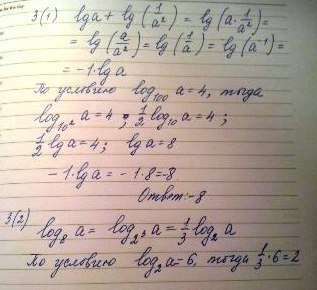 3(1) lg a + lg (1/a²) = lg (a · 1/a²) =
= lg (a/a²) = lg (1/a) = lg (a⁻¹) =
= -1 · lg a
По условию log₁₀₀ a = 4, тогда
log₁₀² a = 4 ; 1/2 log₁₀ a = 4 ;
1/2 lg a = 4 ; lg a = 8
-1 · lg a = -1 · 8 = -8
Ответ: -8
3(2) log₈ a = log₂³ a = 1/3 log₂ a
По условию log₂ a = 6, тогда 1/3 · 6 = 2